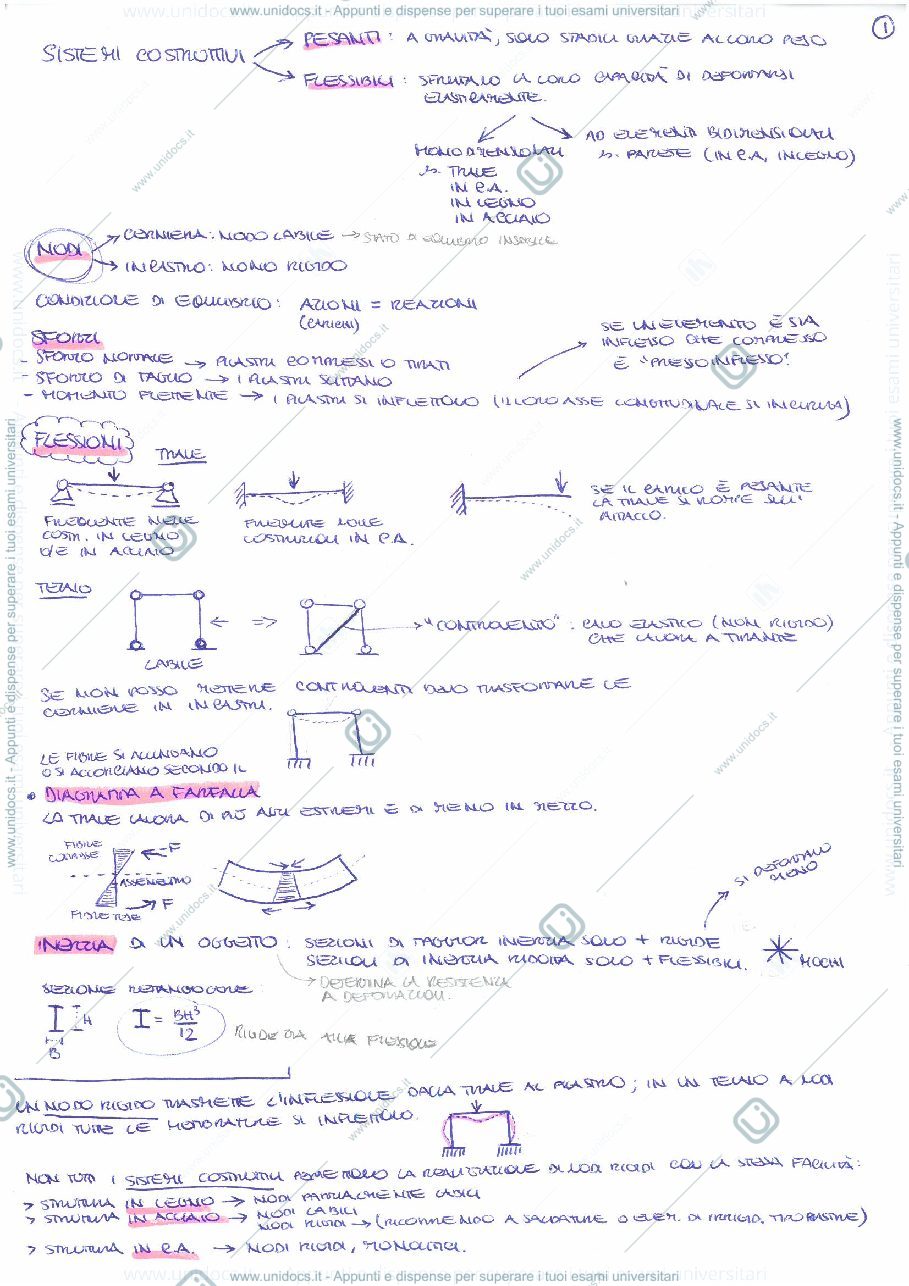 www.unidocs.it - Appunti e dispense per superare i tuoi esami universitari
1
SISTEMI COSTRUTTIVI
PESANTI: A GRAVITÀ, SONO STABILI GRAZIE AL LORO PESO
FLESSIBILI: SFRUTTANO LA LORO CAPACITÀ DI DEFORMARSI
ELASTICAMENTE.
MONODIMENSIONALI
↳ TRAVE
IN C.A.
IN LEGNO
IN ACCIAIO
AD ELEMENTI BIDIMENSIONALI
↳ PARETE (IN C.A, IN LEGNO)
NODI
CERNIERA: NODO LABILE → STATO DI EQUILIBRIO INSTABILE
INCASTRO: NODO RIGIDO
CONDIZIONE DI EQUILIBRIO: AZIONI = REAZIONI
(CARICHI)
SFORZI
- SFORZO NORMALE → PILASTRI COMPRESSI O TIRATI
- SFORZO DI TAGLIO → I PILASTRI SLITTANO
- MOMENTO FLETTENTE → I PILASTRI SI INFLETTONO (IL LORO ASSE LONGITUDINALE SI INCURVA)
SE UN ELEMENTO È SIA
INFLESSO CHE COMPRESSO
È "PRESSOINFLESSO".
FLESSIONI
TRAVE
FREQUENTE NELLE
COSTR. IN LEGNO
O/E IN ACCIAIO
FREQUENTE NELLE
COSTRUZIONI IN C.A.
SE IL CARICO È PESANTE
LA TRAVE SI ROMPE SULL'
ATTACCO.
TELAIO
LABILE
⇒
"CONTROVENTO": CAVO ELASTICO (NON RIGIDO)
CHE LAVORA A TIRANTE
SE NON POSSO METTERE CONTROVENTI DEVO TRASFORMARE LE
CERNIERE IN INCASTRI.
LE FIBRE SI ALLUNGANO
O SI ACCORCIANO SECONDO IL
• DIAGRAMMA A FARFALLA
LA TRAVE LAVORA DI PIÙ AGLI ESTREMI E DI MENO IN MEZZO.
FIBRE
COMPRESSE
F
ASSE NEUTRO
F
FIBRE TESE
SI DEFORMANO
MENO
INERZIA DI UN OGGETTO: SEZIONI DI MAGGIOR INERZIA SONO + RIGIDE
SEZIONI DI INERZIA RIDOTTA SONO + FLESSIBILI.
→ DETERMINA LA RESISTENZA
A DEFORMAZIONI.
SEZIONE RETTANGOLARE:
H
B
I = BH³/12
RIGIDEZZA ALLA FLESSIONE
UN NODO RIGIDO TRASMETTE L'INFLESSIONE DALLA TRAVE AL PILASTRO; IN UN TELAIO A NODI
RIGIDI TUTTE LE MEMBRATURE SI INFLETTONO.
NON TUTTI I SISTEMI COSTRUTTIVI PERMETTONO LA REALIZZAZIONE DI NODI RIGIDI CON LA STESSA FACILITÀ:
> STRUTTURA IN LEGNO → NODI PARZIALMENTE LABILI
> STRUTTURA IN ACCIAIO → NODI LABILI
NODI RIGIDI → (RICORRENDO A SALDATURE O ELEM. DI IRRIGID. TIPO PIASTRE)
> STRUTTURA IN C.A. → NODI RIGIDI, MONOLITICI.
www.unidocs.it - Appunti e dispense per superare i tuoi esami universitari